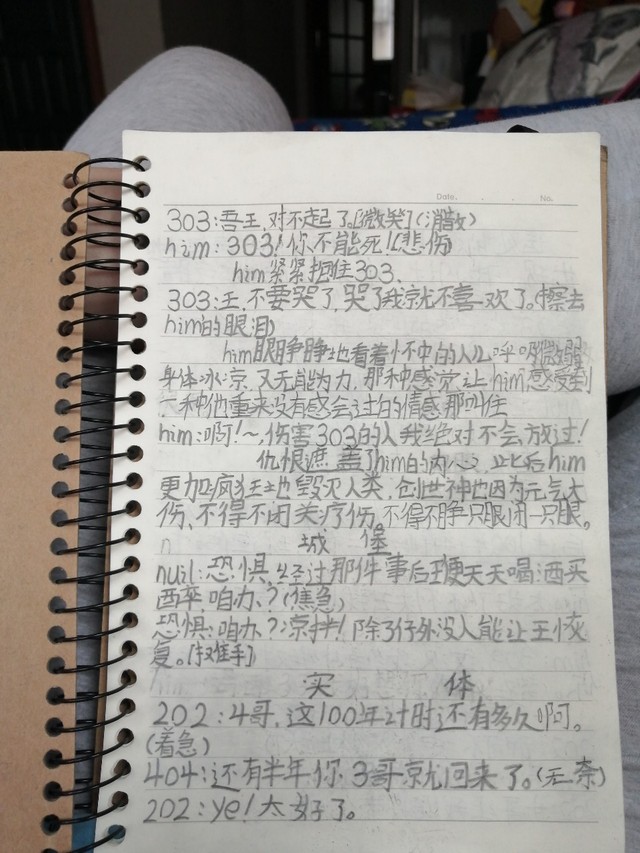 Date. . . No.
303:吾王,对不起了。[微笑](消散)
him:303!你不能死!(悲伤)
him紧紧抱住303、
303:王,不要哭了,哭了我就不喜欢了。(擦去
him的眼泪)
him眼睁睁地看着怀中的人儿呼吸微弱
身体冰凉、又无能为力,那种感觉让him感受到
一种他重来没有感会过的情感那叫住
him:啊!~,伤害303的人我绝对不会放过!
仇恨遮盖了him的内心,此后him
更加疯狂地毁灭人类,创世神也因为元气大
伤、不得不闭关疗伤。不得不睁只眼闭一只眼。
城 堡
null:恐惧,经过那件事后王便天天喝酒买
醉,咱办?(焦急)
恐惧:咱办?凉拌!除了仔外没人能让王恢
复。[摊手]
实 体
202:4哥,这100年计时还有多久啊。
(着急)
404:还有半年你3哥就回来了。(无奈)
202:ye!太好了。